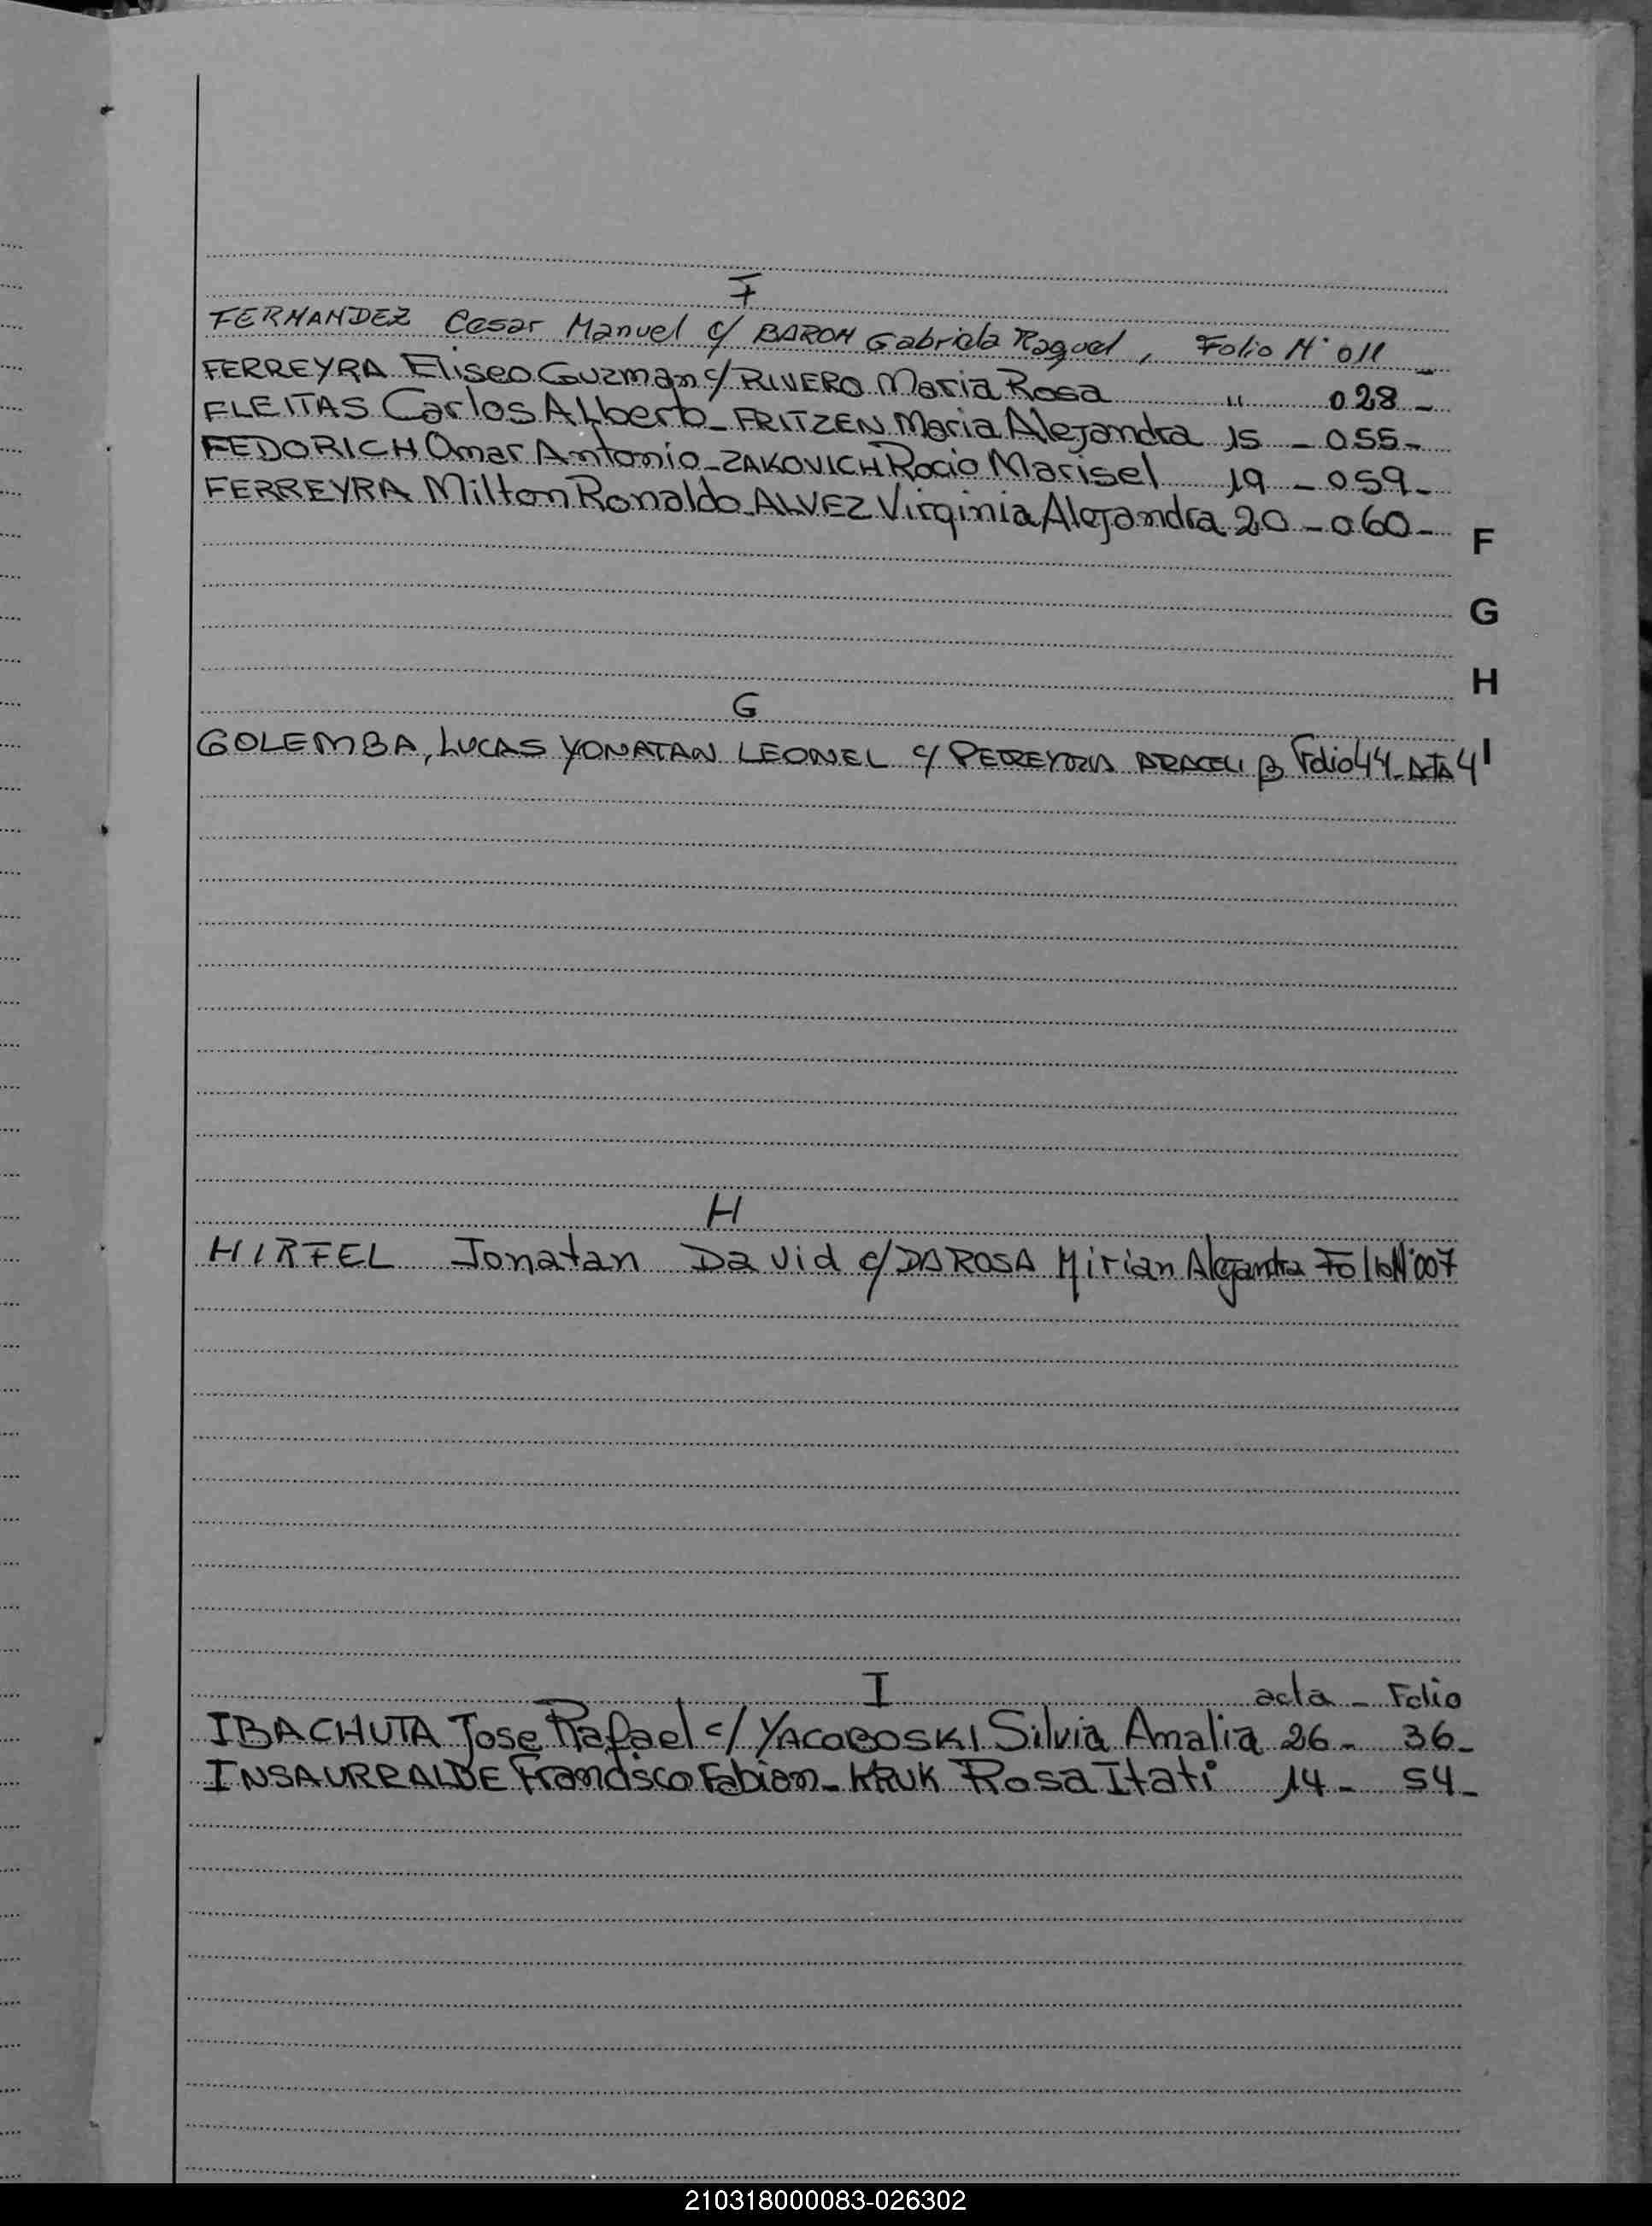 F
FERNANDEZ Cesar Manuel c/ BARON Gabriela Raquel, Folio N° 011
FERREYRA Eliseo Guzman c/ RIVERO Maria Rosa " 028 -
FLEITAS Carlos Alberto - FRITZEN Maria Alejandra 15 - 055 -
FEDORICH Omar Antonio - ZAKOVICH Rocio Marisel 19 - 059 -
FERREYRA Milton Ronaldo - ALVEZ Virginia Alejandra 20 - 060 -
F
G
H
G
GOLEMBA, LUCAS YONATAN LEONEL c/ PEREYRA ARACELI B Folio 44 - ACTA 41
H
HIRFEL Jonatan David c/ DA ROSA Mirian Alejandra Folio N° 007
I acta - Folio
IBACHUTA Jose Rafael c/ YACOBOSKI Silvia Amalia 26 - 36 -
INSAURRALDE Francisco Fabian - KRUK Rosa Itati 14 - 54 -
210318000083-026302